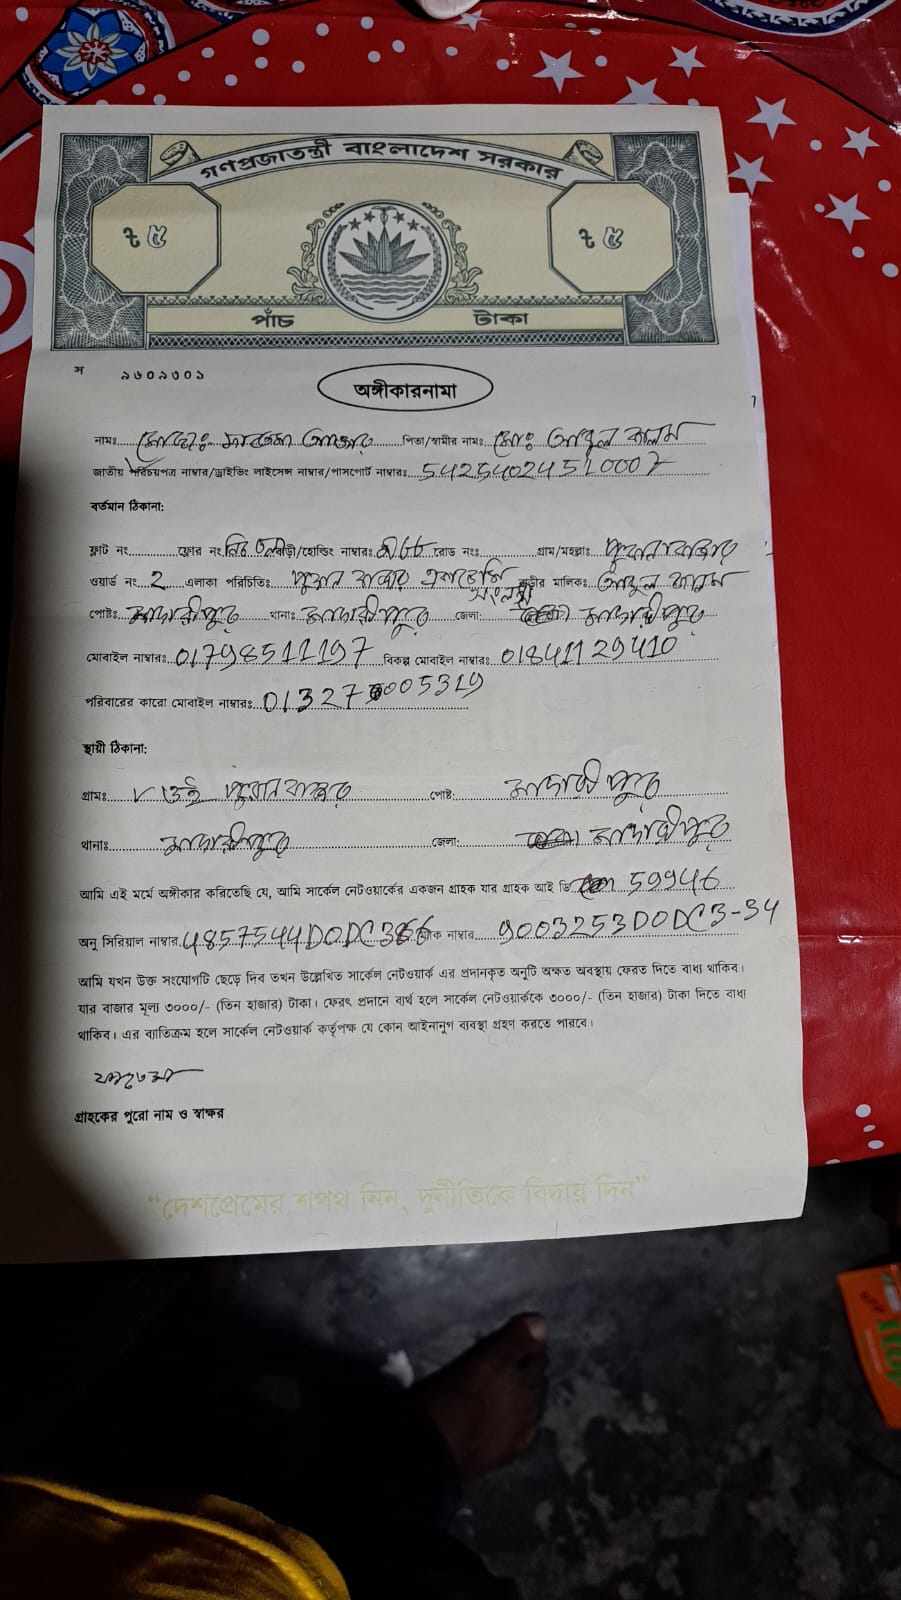 গণপ্রজাতন্ত্রী বাংলাদেশ সরকার
৳ ৫ ৳ ৫
পাঁচ টাকা
স ৯৬০৯৩০১
অঙ্গীকারনামা
নামঃ মোছাঃ আক্তার পিতা/স্বামীর নামঃ মোঃ আবুল কালাম
জাতীয় পরিচয়পত্র নাম্বার/ড্রাইভিং লাইসেন্স নাম্বার/পাসপোর্ট নাম্বারঃ 54254024510007
বর্তমান ঠিকানা:
ফ্লাট নং ফ্লোর নং নিচ তলা বাড়ী/হোল্ডিং নাম্বারঃ রোড নংঃ গ্রাম/মহল্লাঃ পুরান বাজার
ওয়ার্ড নং 2 এলাকা পরিচিতিঃ পুরান বাজার সংলগ্ন বাড়ীর মালিকঃ আবুল কালাম
পোষ্টঃ মাদারীপুর থানাঃ মাদারীপুর জেলা: মাদারীপুর
মোবাইল নাম্বারঃ 01798511197 বিকল্প মোবাইল নাম্বারঃ 01841129410
পরিবারের কারো মোবাইল নাম্বারঃ
স্থায়ী ঠিকানা:
গ্রামঃ পুরান বাজার পোষ্ট: মাদারীপুর
থানাঃ মাদারীপুর জেলা: মাদারীপুর
আমি এই মর্মে অঙ্গীকার করিতেছি যে, আমি সার্কেল নেটওয়ার্কের একজন গ্রাহক যার গ্রাহক আই ডি 59946
অনু সিরিয়াল নাম্বার 4857544D0DC386 ম্যাক নাম্বার 9003253D0DC3-34
আমি যখন উক্ত সংযোগটি ছেড়ে দিব তখন উল্লেখিত সার্কেল নেটওয়ার্ক এর প্রদানকৃত অনুটি অক্ষত অবস্থায় ফেরত দিতে বাধ্য থাকিব।
যার বাজার মূল্য ৩০০০/- (তিন হাজার) টাকা। ফেরৎ প্রদানে ব্যর্থ হলে সার্কেল নেটওয়ার্ককে ৩০০০/- (তিন হাজার) টাকা দিতে বাধ্য
থাকিব। এর ব্যতিক্রম হলে সার্কেল নেটওয়ার্ক কর্তৃপক্ষ যে কোন আইনানুগ ব্যবস্থা গ্রহণ করতে পারবে।
গ্রাহকের পুরো নাম ও স্বাক্ষর
“দেশপ্রেমের শপথ নিন, দুর্নীতিকে বিদায় দিন”